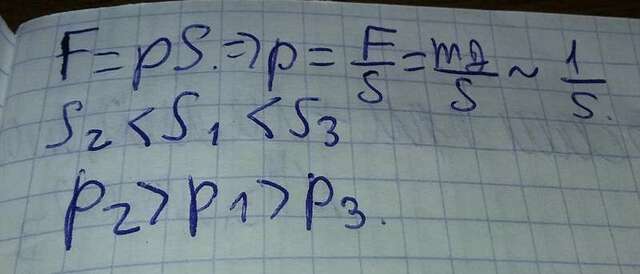 F = pS. => p = F/S = mg/S ~ 1/S.
S₂ < S₁ < S₃
p₂ > p₁ > p₃.